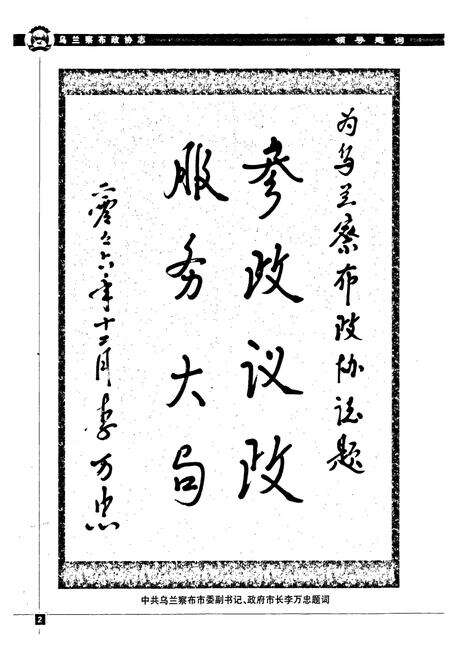 乌兰察布政协志
领导题词
为乌兰察布政协志题
参政议政
服务大局
二零零六年十二月李万忠
中共乌兰察布市委副书记、政府市长李万忠题词
2